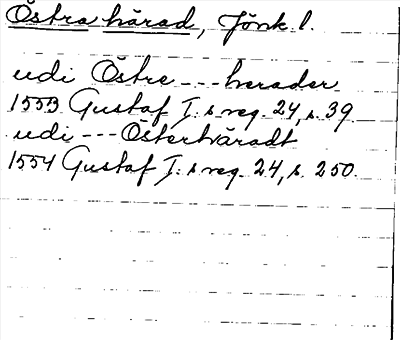 Östra härad, Jönk. l.
udi Östre --- herader
1553 Gustaf I:s reg. 24, s. 39.
udi --- Österhäradt
1554 Gustaf I:s reg. 24, s. 250.